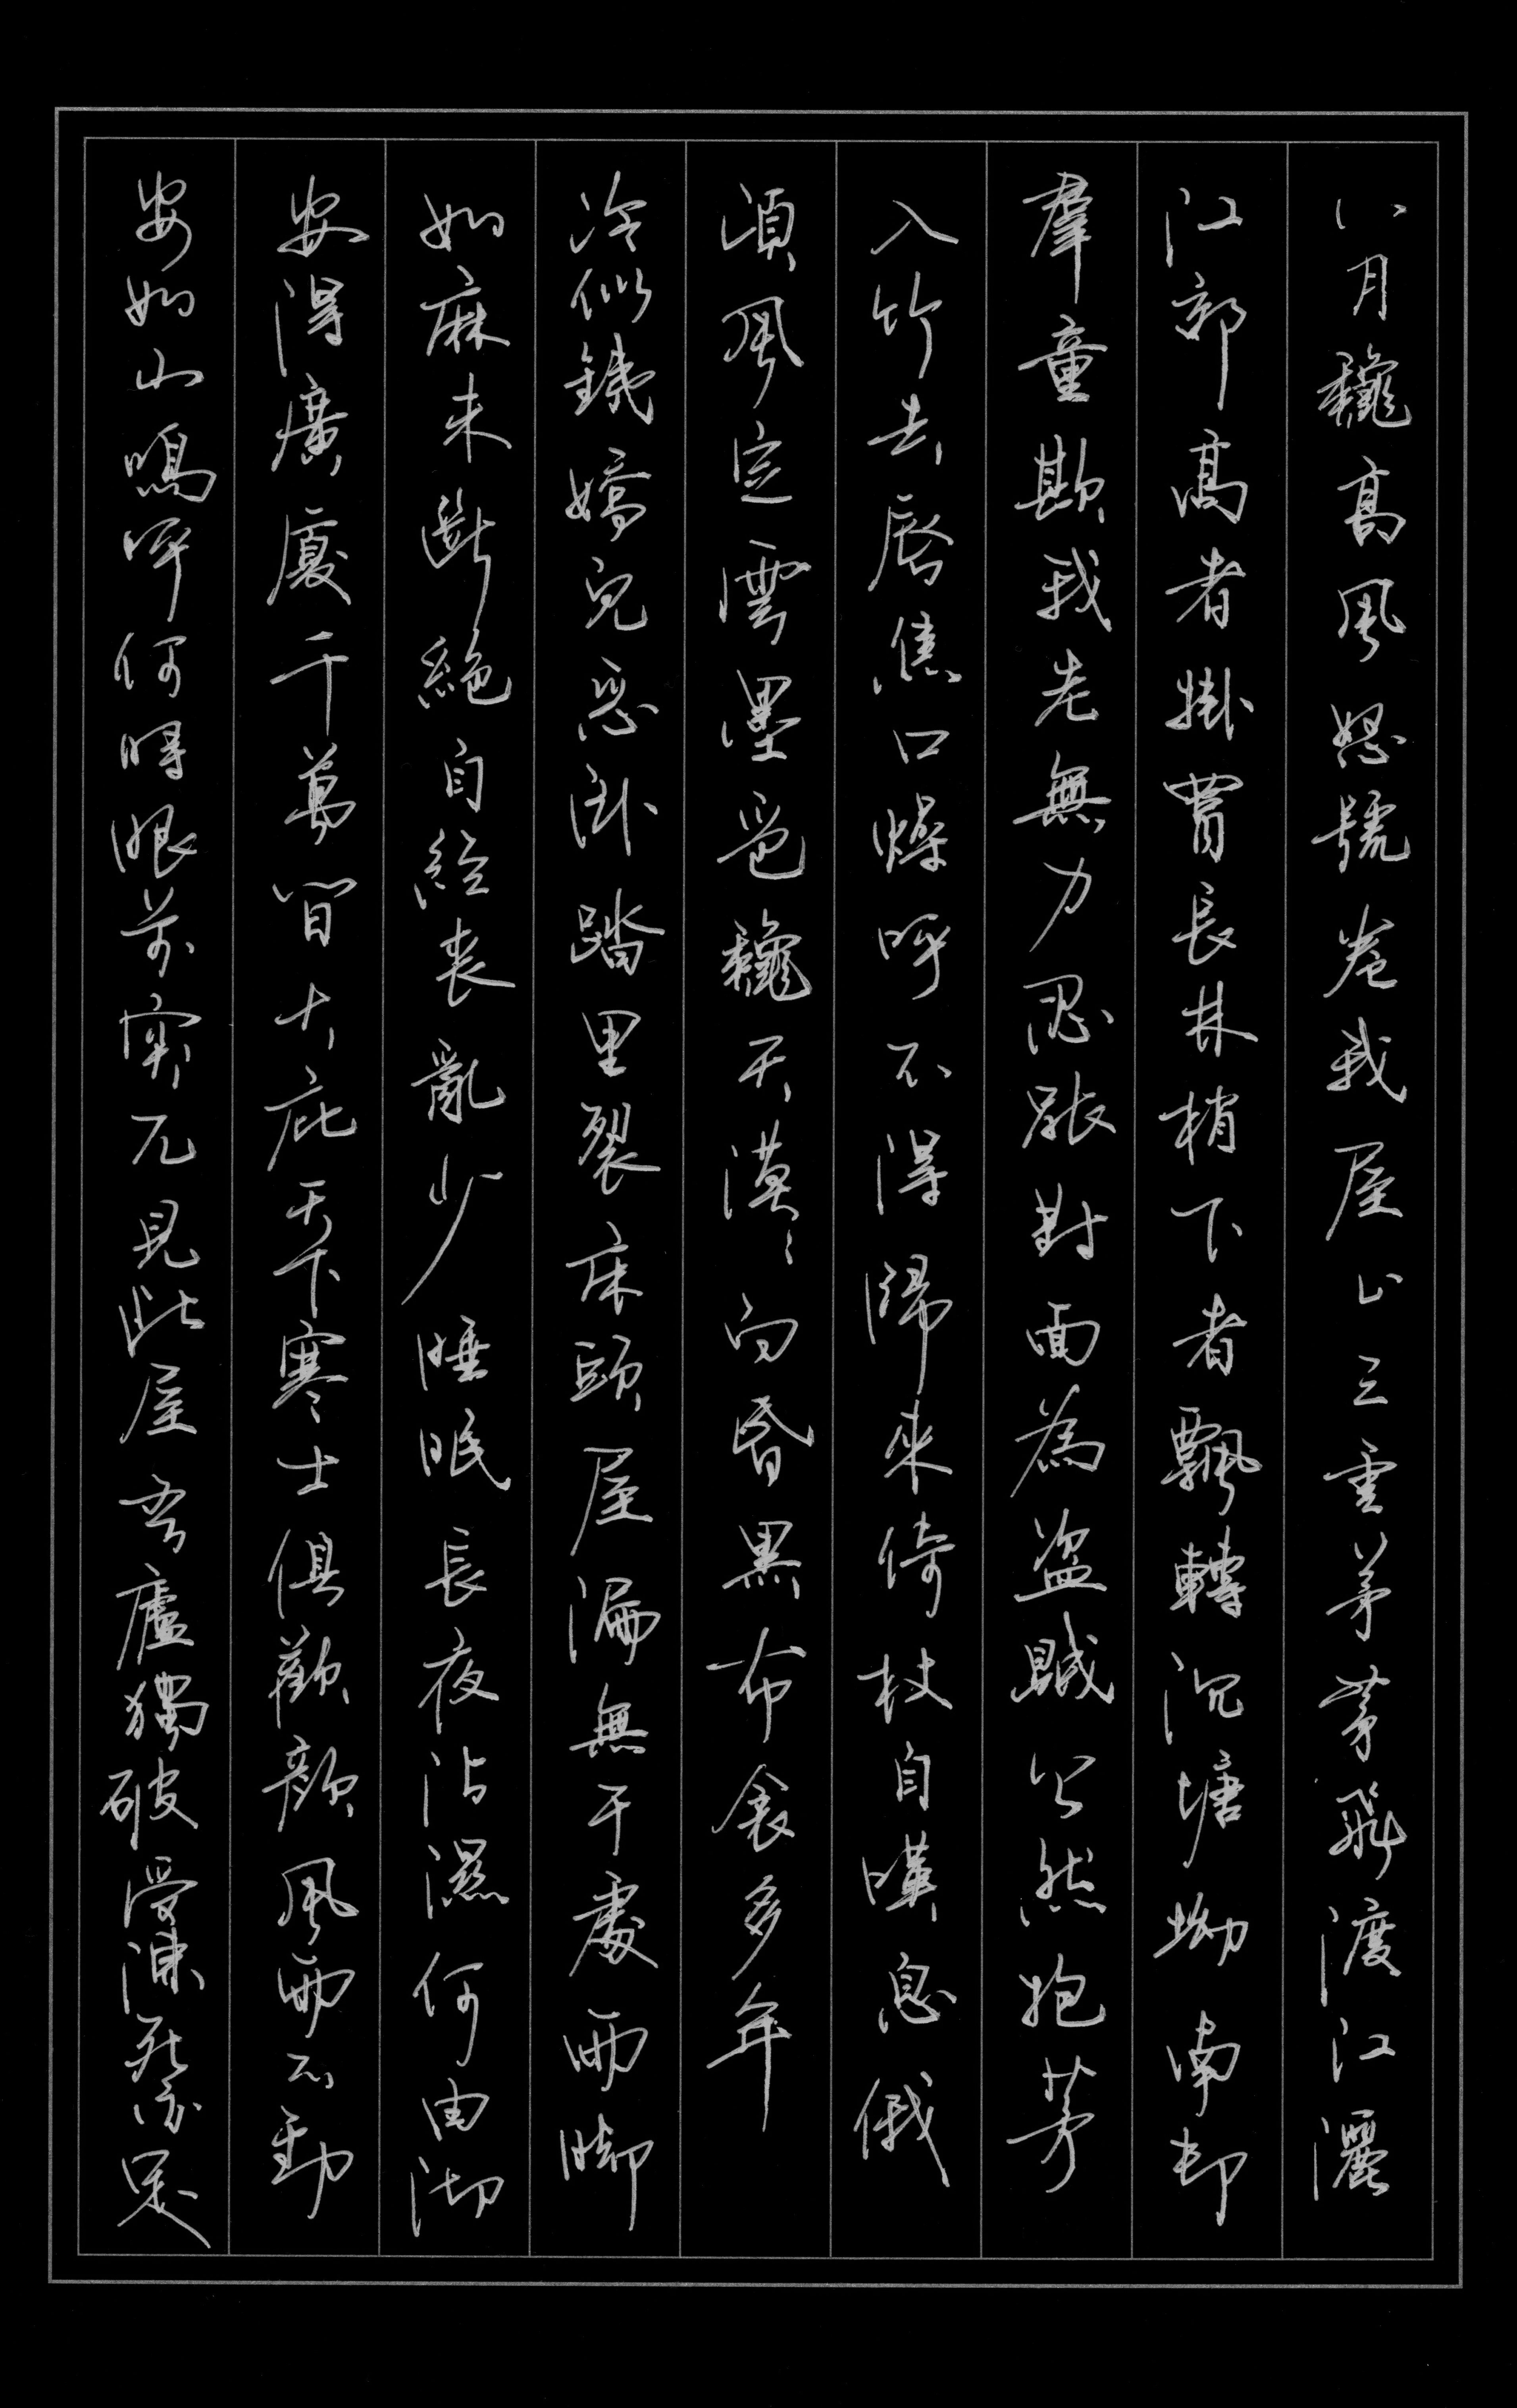 八月龝高風怒號卷我屋上三重茅茅飛渡江灑
江郊高者掛罥長林梢下者飄轉沉塘坳南邨
羣童欺我老無力忍能對面為盜賊公然抱茅
入竹去唇焦口燥呼不得歸來倚杖自嘆息俄
頃風定雲墨色龝天漠〻向昏黑布衾多年
冷似鐵嬌兒惡臥踏里裂床頭屋漏無干處雨脚
如麻未斷絕自經喪亂少睡眠長夜沾濕何由彻
安得廣廈千萬間大庇天下寒士俱歡顏風雨不動
安如山嗚呼何時眼前突兀見此屋吾廬獨破受凍死亦足